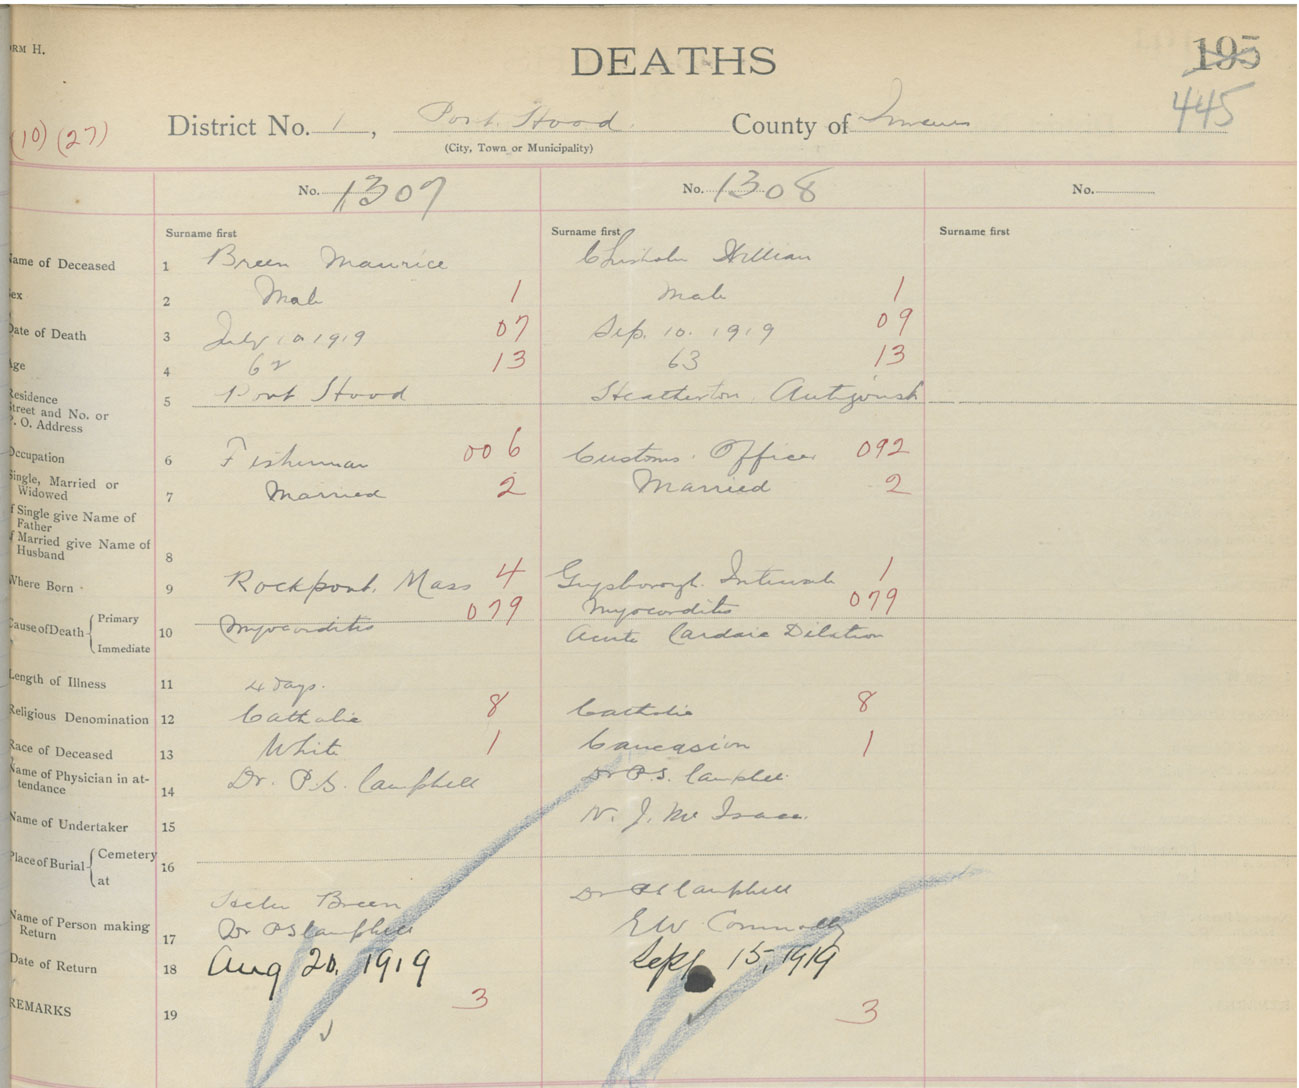 ORM H.
DEATHS
195
445
(10) (27)
District No. 1, Port Hood County of
(City, Town or Municipality)
No. 1307 No. 1308 No.
Surname first Surname first Surname first
ame of Deceased 1 Breen Maurice Chisholm William
ex 2 Male 1 male 1
Date of Death 3 July 10 1919 07 Sep. 10. 1919 09
ge 4 62 13 63 13
Residence
Street and No. or
P. O. Address 5 Port Hood Heatherton, Antigonish
Occupation 6 Fisherman 006 Customs. Officer 092
Single, Married or
Widowed 7 Married 2 Married 2
f Single give Name of
Father
f Married give Name of
Husband 8
Where Born 9 Rockport. Mass 4 Guysborough. Intervale 1
Cause of Death { Primary 079 myocorditis 079
Immediate 10 myocorditis Acute Cardaic Dilation
Length of Illness 11 4 days.
Religious Denomination 12 Catholic 8 Catholic 8
Race of Deceased 13 White 1 Caucasion 1
Name of Physician in at-
tendance 14 Dr. P.S. Campbell Dr P.S. Campbell
Name of Undertaker 15 N. J. Mc Isaac.
Place of Burial { Cemetery
at 16
Breen Dr PS Campbell
Name of Person making
Return 17 Dr PS Campbell EW Connolly
Date of Return 18 Aug 20, 1919 Sept 15, 1919
REMARKS 19 3 3